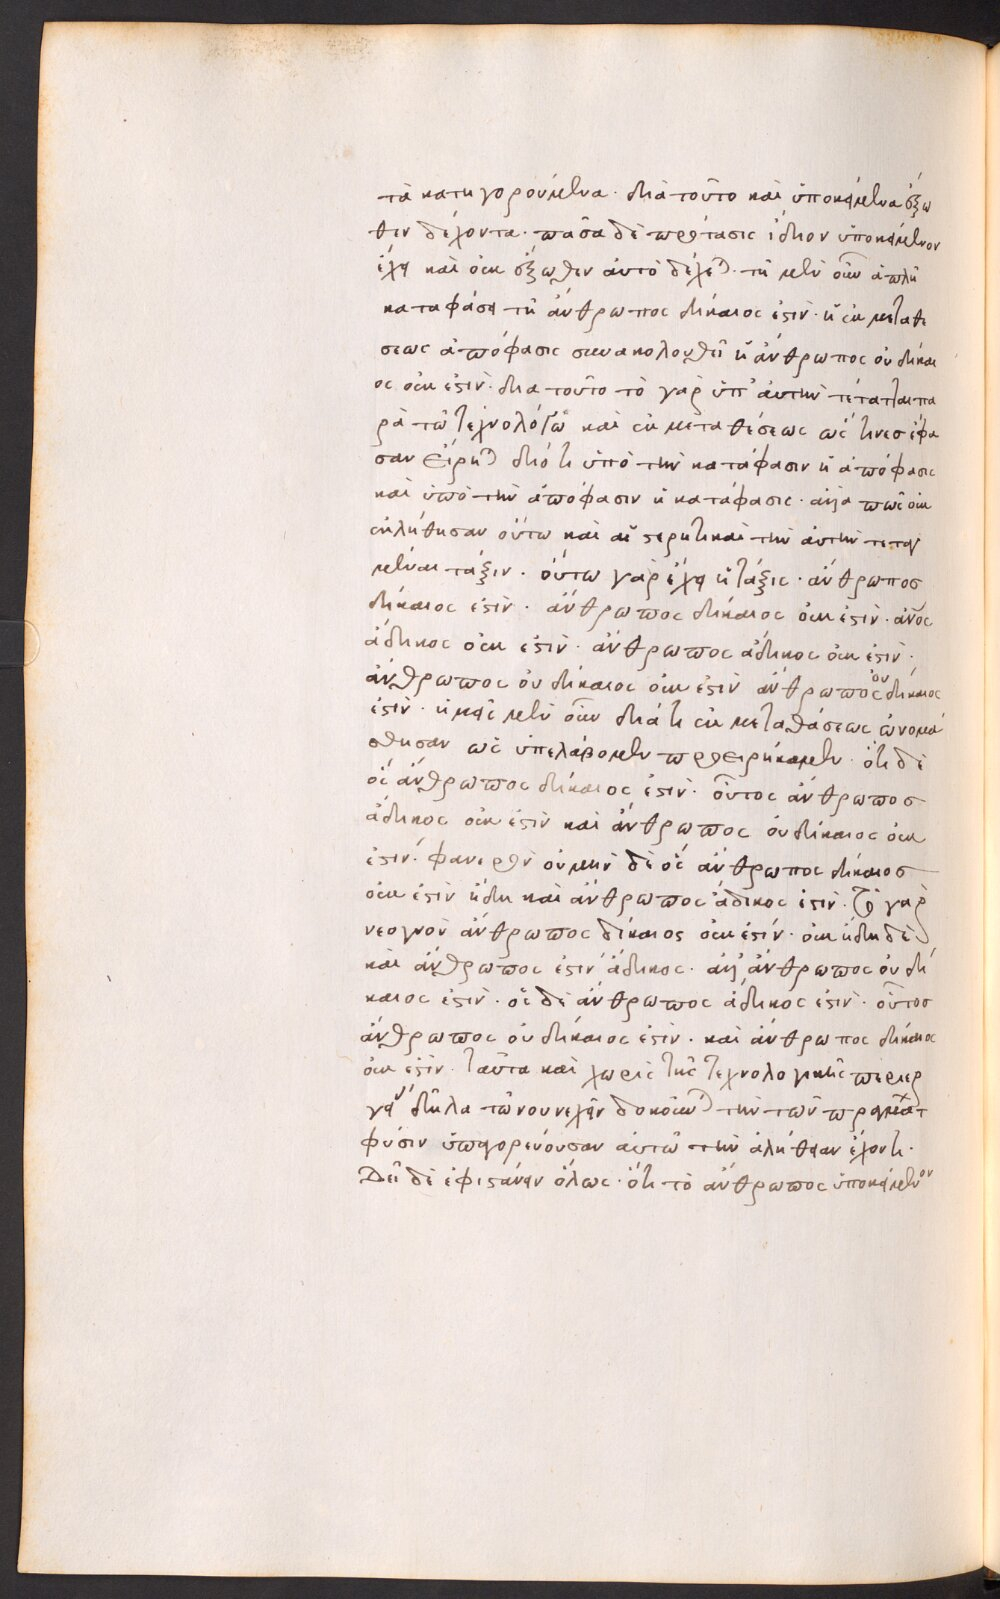 τὰ κατηγορούμενα. διὰ τοῦτο καὶ ὑποκείμενα ἔξω
θεν δέχονται. πᾶσα δὲ πρότασις ἴδιον ὑποκείμενον
ἔχει καὶ οὐκ ἔξωθεν αὐτὸ δέχεται. τῆ μὲν οὖν ἁπλῆ
καταφάσει τῆ ἄνθρωπος δίκαιος ἐστὶν. ἡ ἐκ μεταθέ
σεως ἀπόφασις συνακολουθεῖ ἡ ἄνθρωπος οὐ δίκαι
ος οὐκ ἐστὶν. δια τοῦτο τὸ γὰρ ὑπ' αὐτὴν τέτακται πα
ρὰ τῶ τεχνολόγω καὶ ἐκ μεταθέσεως ὥς τινες ἔφα
σαν εἴρηται διότι ὑπὸ τὴν κατάφασιν ἡ ἀπόφασις
καὶ ὑπὸ τὴν ἀπόφασιν ἡ κατάφασις. ἀλλὰ πῶς οὐκ
ἐκλήθησαν οὕτω καὶ αἱ στερητικαὶ τὴν αὐτὴν τεταγ
μέναι τάξιν. οὕτω γὰρ ἔχει ἡ τάξις. ἄνθρωπος
δίκαιος ἐστὶν. ἄνθρωπος δίκαιος οὐκ ἐστὶν. ἄνος
ἄδικος οὐκ ἐστὶν. ἄνθρωπος ἄδικος οὐκ ἐστὶν.
ἄνθρωπος οὐ δίκαιος οὐκ ἐστὶν ἄνθρωπος οὐ δίκαιος
ἐστὶν. ἡμεῖς μὲν οὖν διά τι ἐκ μεταθέσεως ὠνομά
σθησαν ὡς ὑπελάβομεν προειρήκαμεν. ὅτι δὲ
ὃς ἄνθρωπος δίκαιος ἐστὶν. οὗτος ἄνθρωπος
ἄδικος οὐκ ἐστὶν καὶ ἄνθρωπος οὐ δίκαιος οὐκ
ἐστὶν. φανερὸν οὐ μὴν δὲ ὃς ἄνθρωπος δίκαιος
οὐκ ἐστὶν ἤδη καὶ ἄνθρωπος ἄδικος ἐστὶν. τὸ γὰρ
νεογνὸν ἄνθρωπος δίκαιος οὐκ ἐστίν. οὐκ ἤδη δὲ
καὶ ἄνθρωπος ἐστὶν ἄδικος. ἀλλ' ἄνθρωπος οὐ δί
καιος ἐστὶν. ὃς δὲ ἄνθρωπος ἄδικος ἐστὶν. οὗτος
ἄνθρωπος οὐ δίκαιος ἐστὶν. καὶ ἄνθρωπος δίκαιος
οὐκ ἐστὶν. ταῦτα καὶ χωρὶς τῆς τεχνολογικῆς περιερ
γείας δῆλα τῶ νουνεχεῖν δοκοῦνται τὴν τῶν πραγμάτ
φύσιν ὑπαγορεύουσαν αὐτῶ τὴν ἀλήθειαν ἔχοντι.
Δεῖ δὲ ἐφιστάνειν ὅλως. ὅτι τὸ ἄνθρωπος ὑποκείμενον